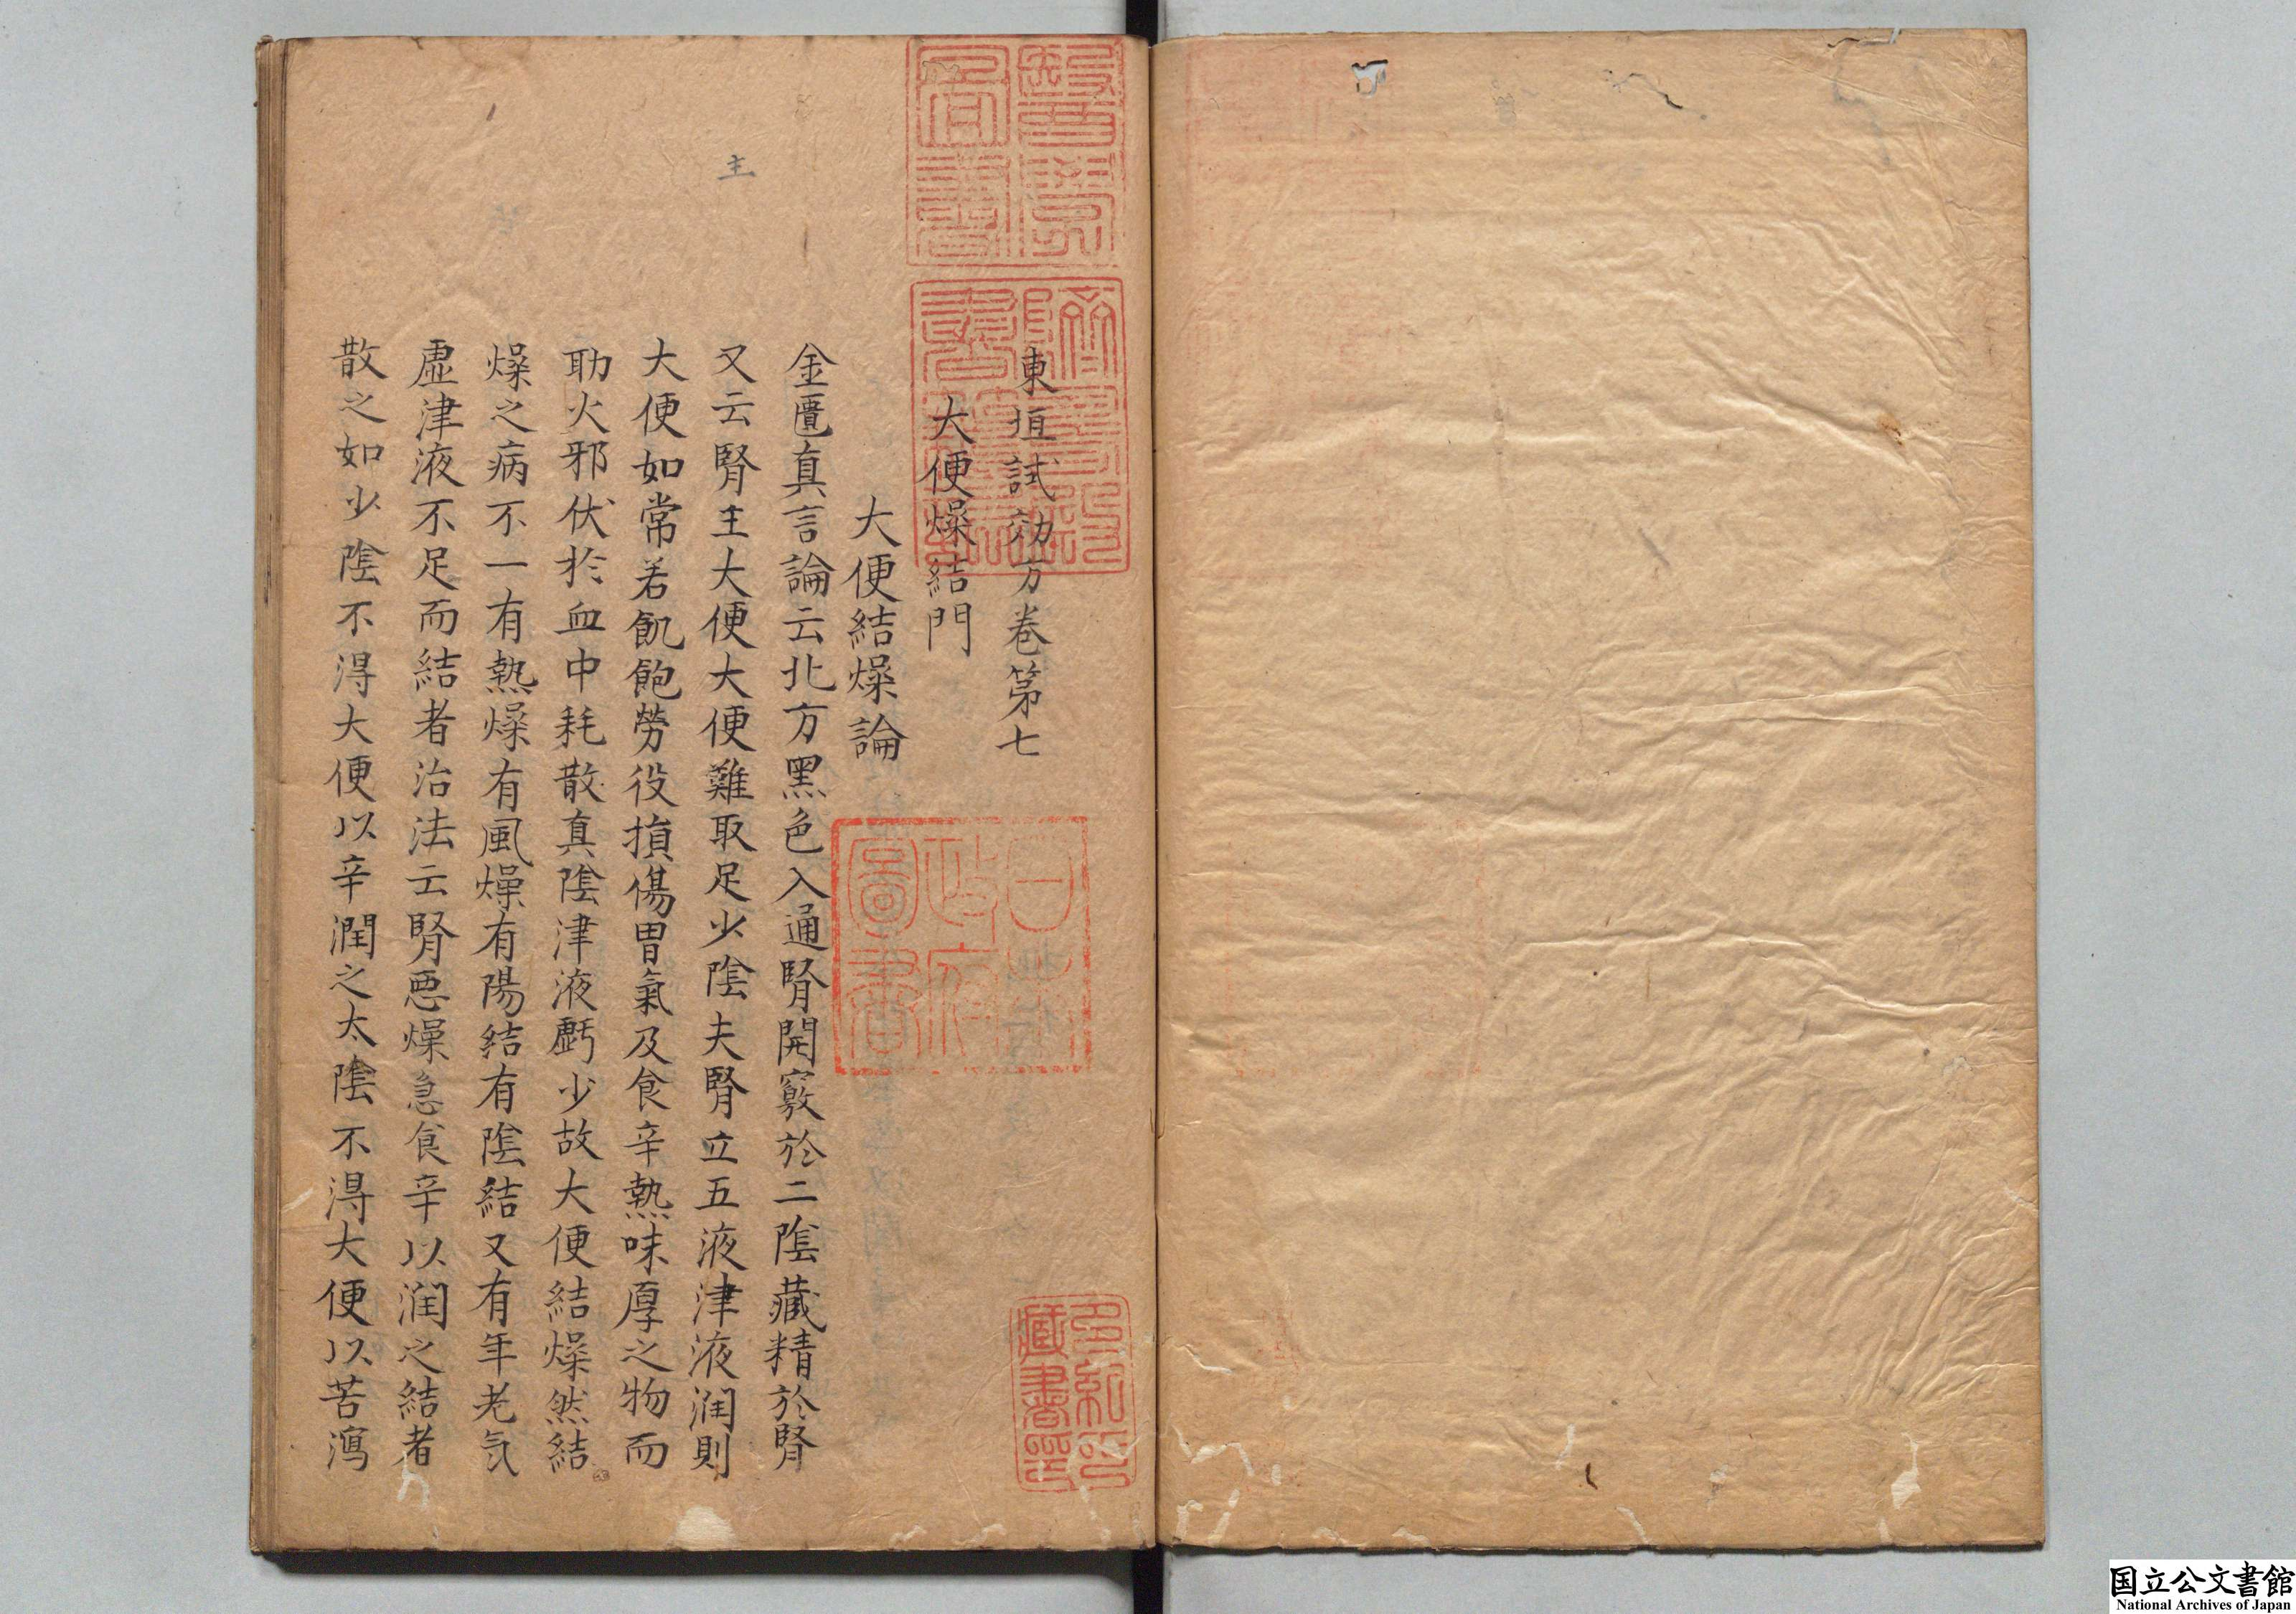 東垣試効方卷第七
大便燥結門
大便結燥論
金匱真言論云北方黑色入通腎開竅於二陰藏精於腎
又云腎主大便大便難取足少陰夫腎立五液津液潤則
大便如常若飢飽勞役損傷胃氣及食辛熱味厚之物而
助火邪伏於血中耗散真陰津液虧少故大便結燥然結
燥之病不一有熱燥有風燥有陽結有陰結又有年老气
虛津液不足而結者治法云腎惡燥急食辛以潤之結者
散之如少陰不得大便以辛潤之太陰不得大便以苦瀉
主
醫學圖書
躋壽殿書籍記
日本政府圖書
多紀氏藏書印
国立公文書館
National Archives of Japan